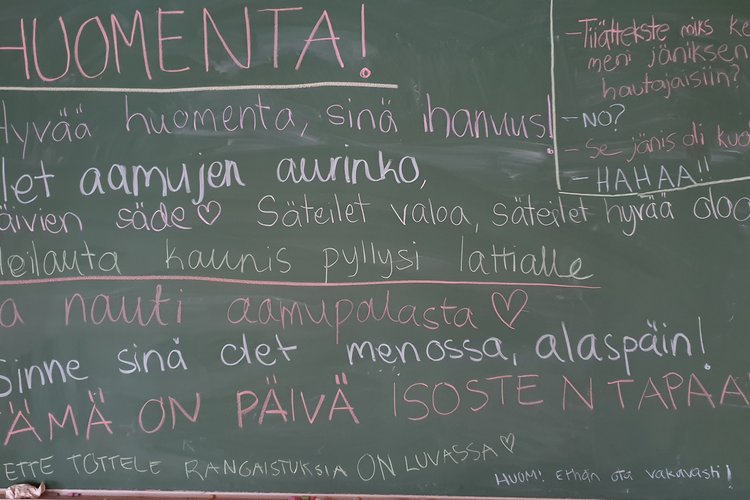 HUOMENTA!
Hyvää huomenta, sinä ihanuus!
let aamujen aurinko,
äivien säde♡ Säteilet valoa, säteilet hyvää oloa
eilauta kaunis pyllysi lattialle
a nauti aamupalasta♡
Sinne sinä olet menossa, alaspäin!
TÄMÄ ON PÄIVÄ ISOSTEN TAPAA
ETTE TOTTELE RANGAISTUKSIA ON LUVASSA♡
HUOM! Ethän ota vakavasti!
-Tiiättekste miks ke
meni jäniksen
hautajaisiin?
-NO?
-Se jänis oli kuo
-HAHAA!!